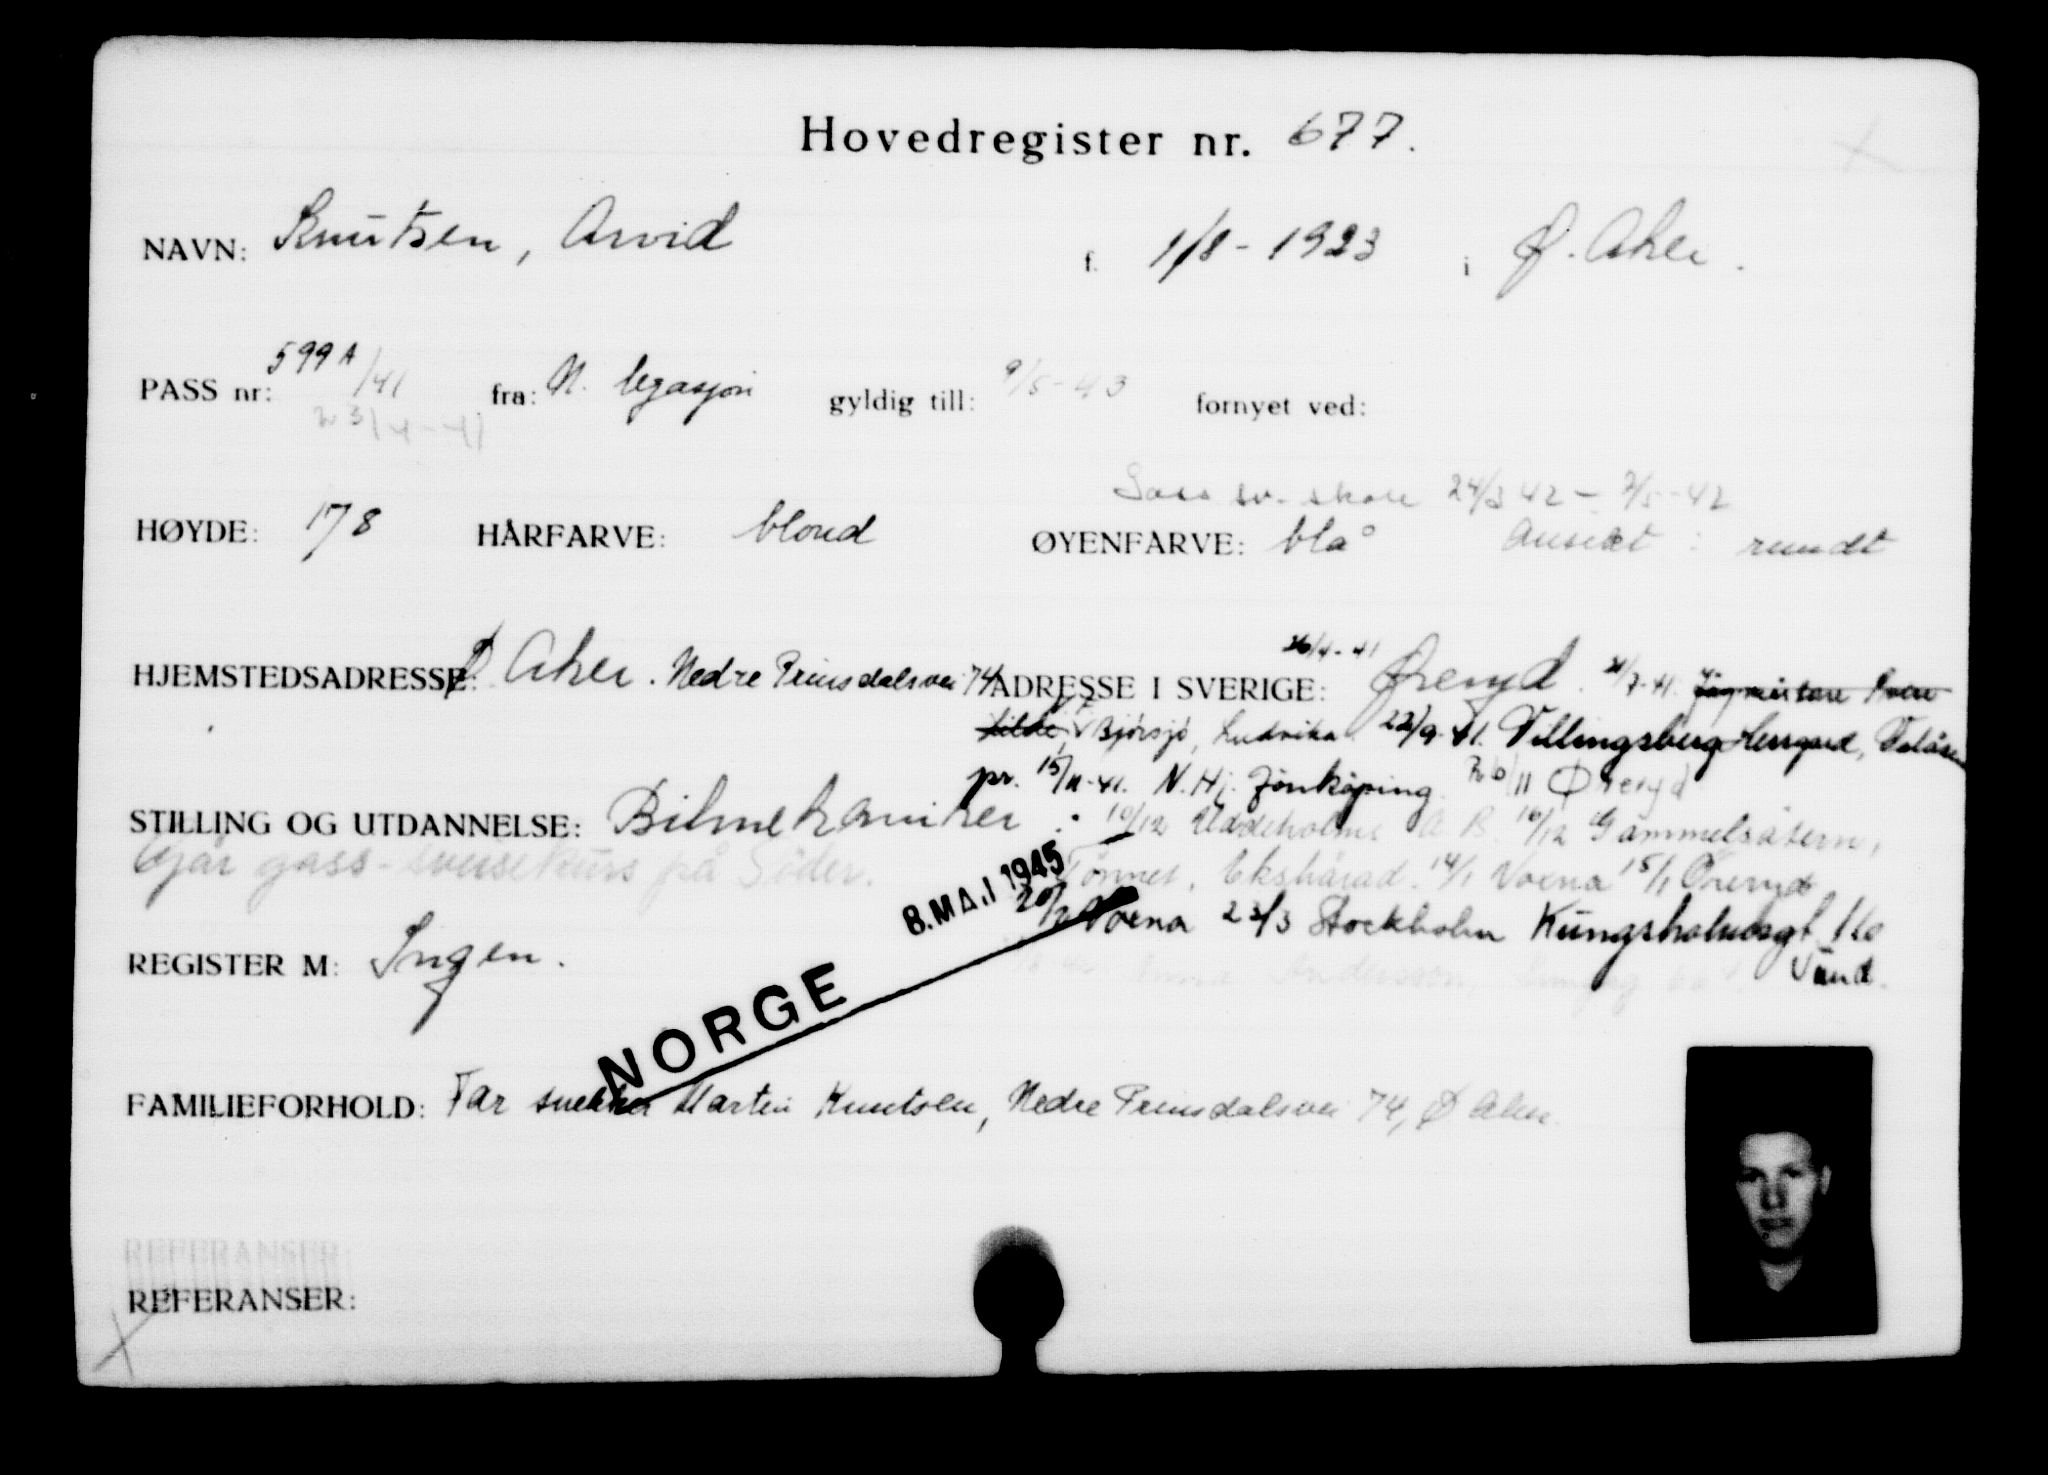 Hovedregister nr. 677.
NAVN: Knutsen, Arvid f. 1/8-1923 i Ø. Aker.
PASS nr: 599A/41 fra: N. legasjon gyldig till: 9/5-43 fornyet ved:
23/4-41
24/3 42 – 7/5-42
HØYDE: 178 HÅRFARVE: blond ØYENFARVE: blå Ansikt: rundt
HJEMSTEDSADRESSE: Ø Aker. Nedre Prinsdalsvei 74 ADRESSE I SVERIGE: 26/4-41 Øreryd. 21/7-41. Jägmästare
Bjørsjö, Ludvika. 22/9-41. Villingsberg Herrgard,
pr. 15/11-41. N.Hj. Jönköping. Øreryd
STILLING OG UTDANNELSE: Bilmekaniker. 10/12 Uddeholms A B. 16/12 Gammelsätern,
Går gass-sveisekurs på Söder. Tönnet, Ekshärad. 14/1 Voxna 15/1 Öreryd
8. MAI 1945
Voxna 23/3 Stockholm Kungsholmsgt
REGISTER M: Ingen.
Anna Andersson,
NORGE
FAMILIEFORHOLD: Far snekker Martin Knutsen, Nedre Prinsdalsvei 74, Ø Aker.
REFERANSER:
REFERANSER: